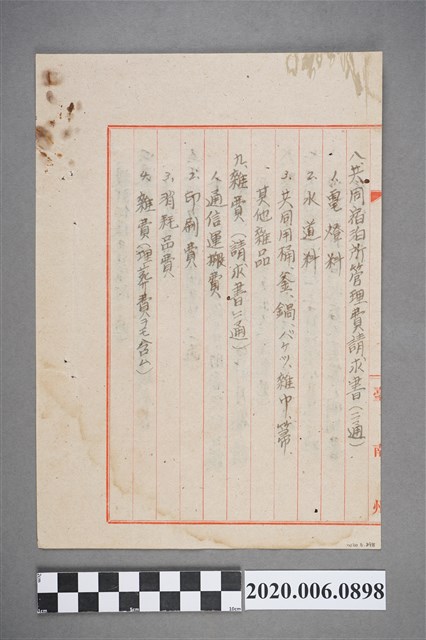 八、共同宿泊所管理費請求書(二通)
1、電燈料
2、水道料
3、共同用桶、釜、鍋、バケツ、雑巾、箒、
其他雑品
九、雑費(請求書二通)
1、通信運搬費
2、印刷費
3、消耗品費
4、雑費(埋葬費ヲモ含ム)
臺南州
2020.006.0898